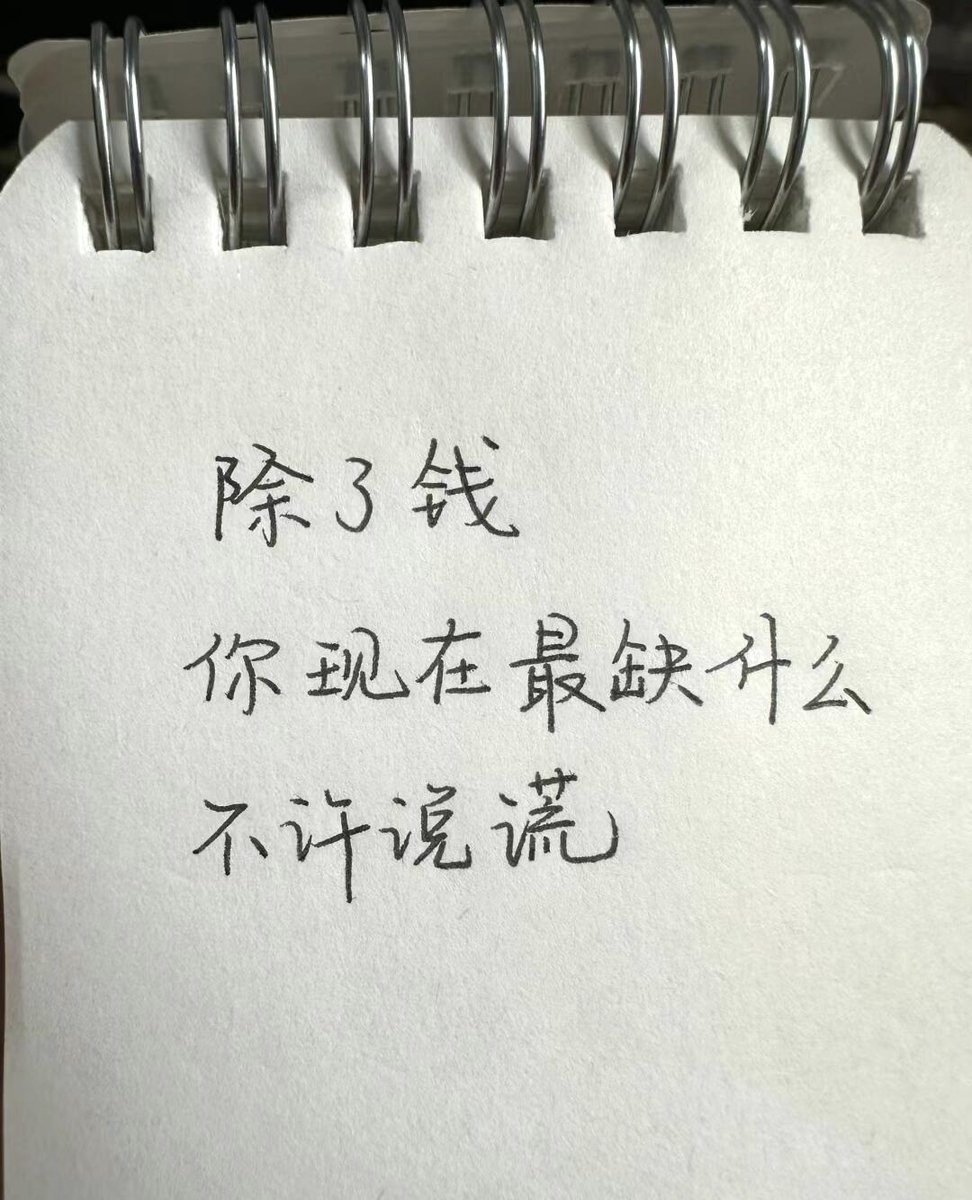 除了钱
你现在最缺什么
不许说谎